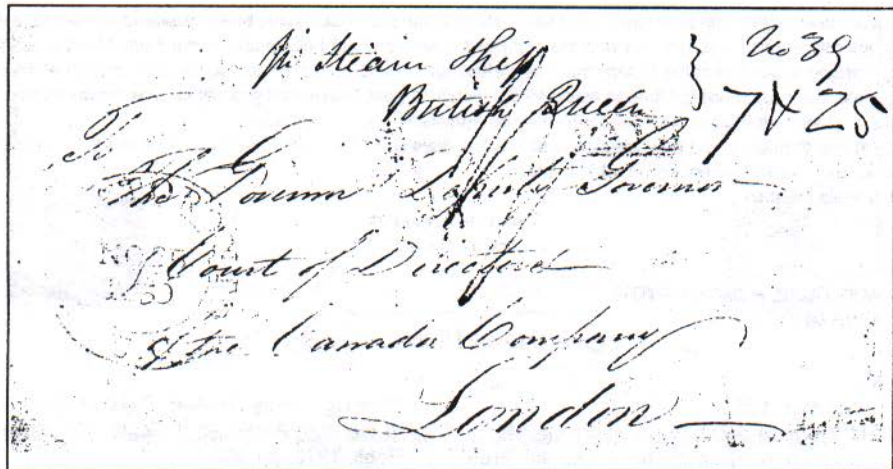 pr Steam Ship
British Queen
No 39
7 N 25
To
The Governor Deputy Governor
Court of Directors
of the Canada Company
London